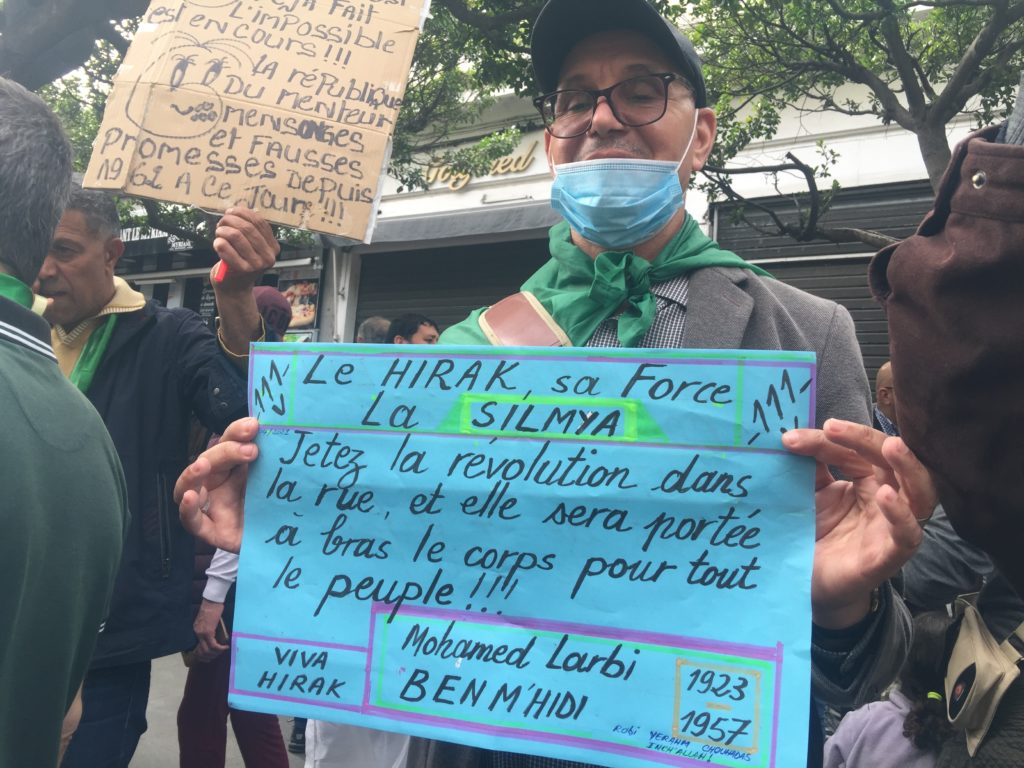 DÉJÀ FAIT
L'IMPOSSIBLE
EST EN COURS !!!
LA RÉPUBLIQUE
DU MENTEUR
MENSONGES
ET FAUSSES
PROMESSES DEPUIS
1962 A CE JOUR !!!
Le HIRAK, sa Force
La SILMYA
Jetez la révolution dans
la rue, et elle sera portée
à bras le corps pour tout
le peuple !!!
VIVA
HIRAK
Mohamed Larbi
BEN M'HIDI
1923
1957
Robi YERAHM CHOUHADAS
INCH'ALLAH !